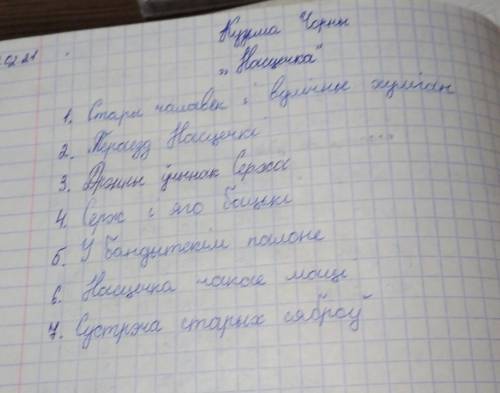 02 21
Кузьма Чорны
„Насцечка“
1. Стары чалавек і вулічны хуліган
2. Пераезд Насцечкі
3. Дрэнны ўчынак Сержа
4. Серж і яго бацькі
5. У бандыцкім палоне
6. Насцечка чакае маці
7. Сустрэча старых сяброў